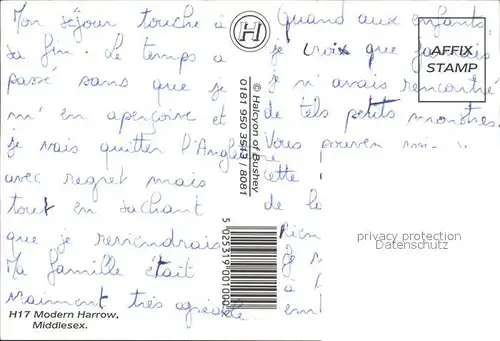 Mon séjour touche à
sa fin. Le temps a
passé sans que je
m'en aperçoive et
je vais quitter l'Angleterre
avec regret mais
tout en sachant
que je reviendrais
Ma famille était
vraiment très agréable.
H17 Modern Harrow,
Middlesex.
H
© Halcyon of Bushey
0181 950 3543 / 8081
5 025319 001000
Quand aux enfants,
je croix que jamais
je n'avais rencontré
de tels petits monstres.
Vous pouvez
cette
de le
Rien
à
AFFIX
STAMP
privacy protection
Datenschutz